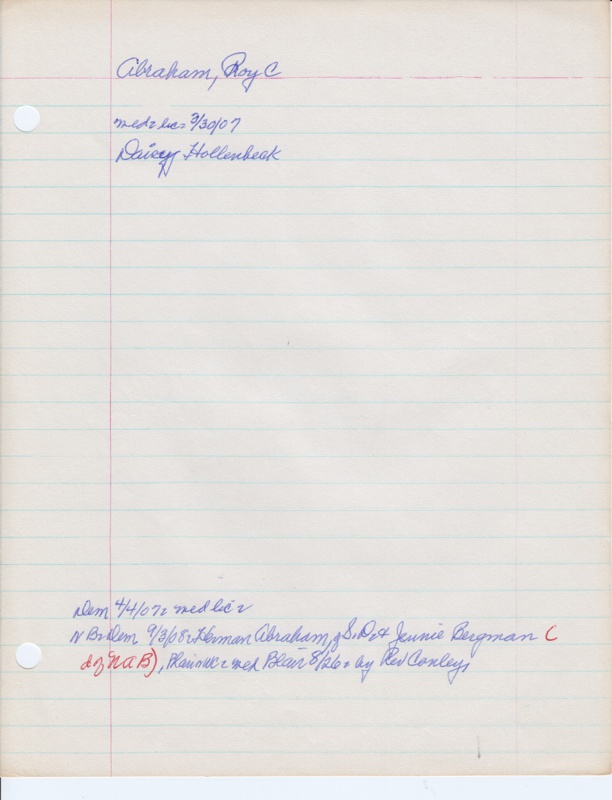 Abraham, Roy C
med lic 3/30/07
Daisy Hollenbeck
Dem 4/4/07 med lic
N B Dem 9/3/08 Herman Abraham, of S.D. & Jennie Bergman (
d of N a B), med Blair 8/26 by Rev Conley